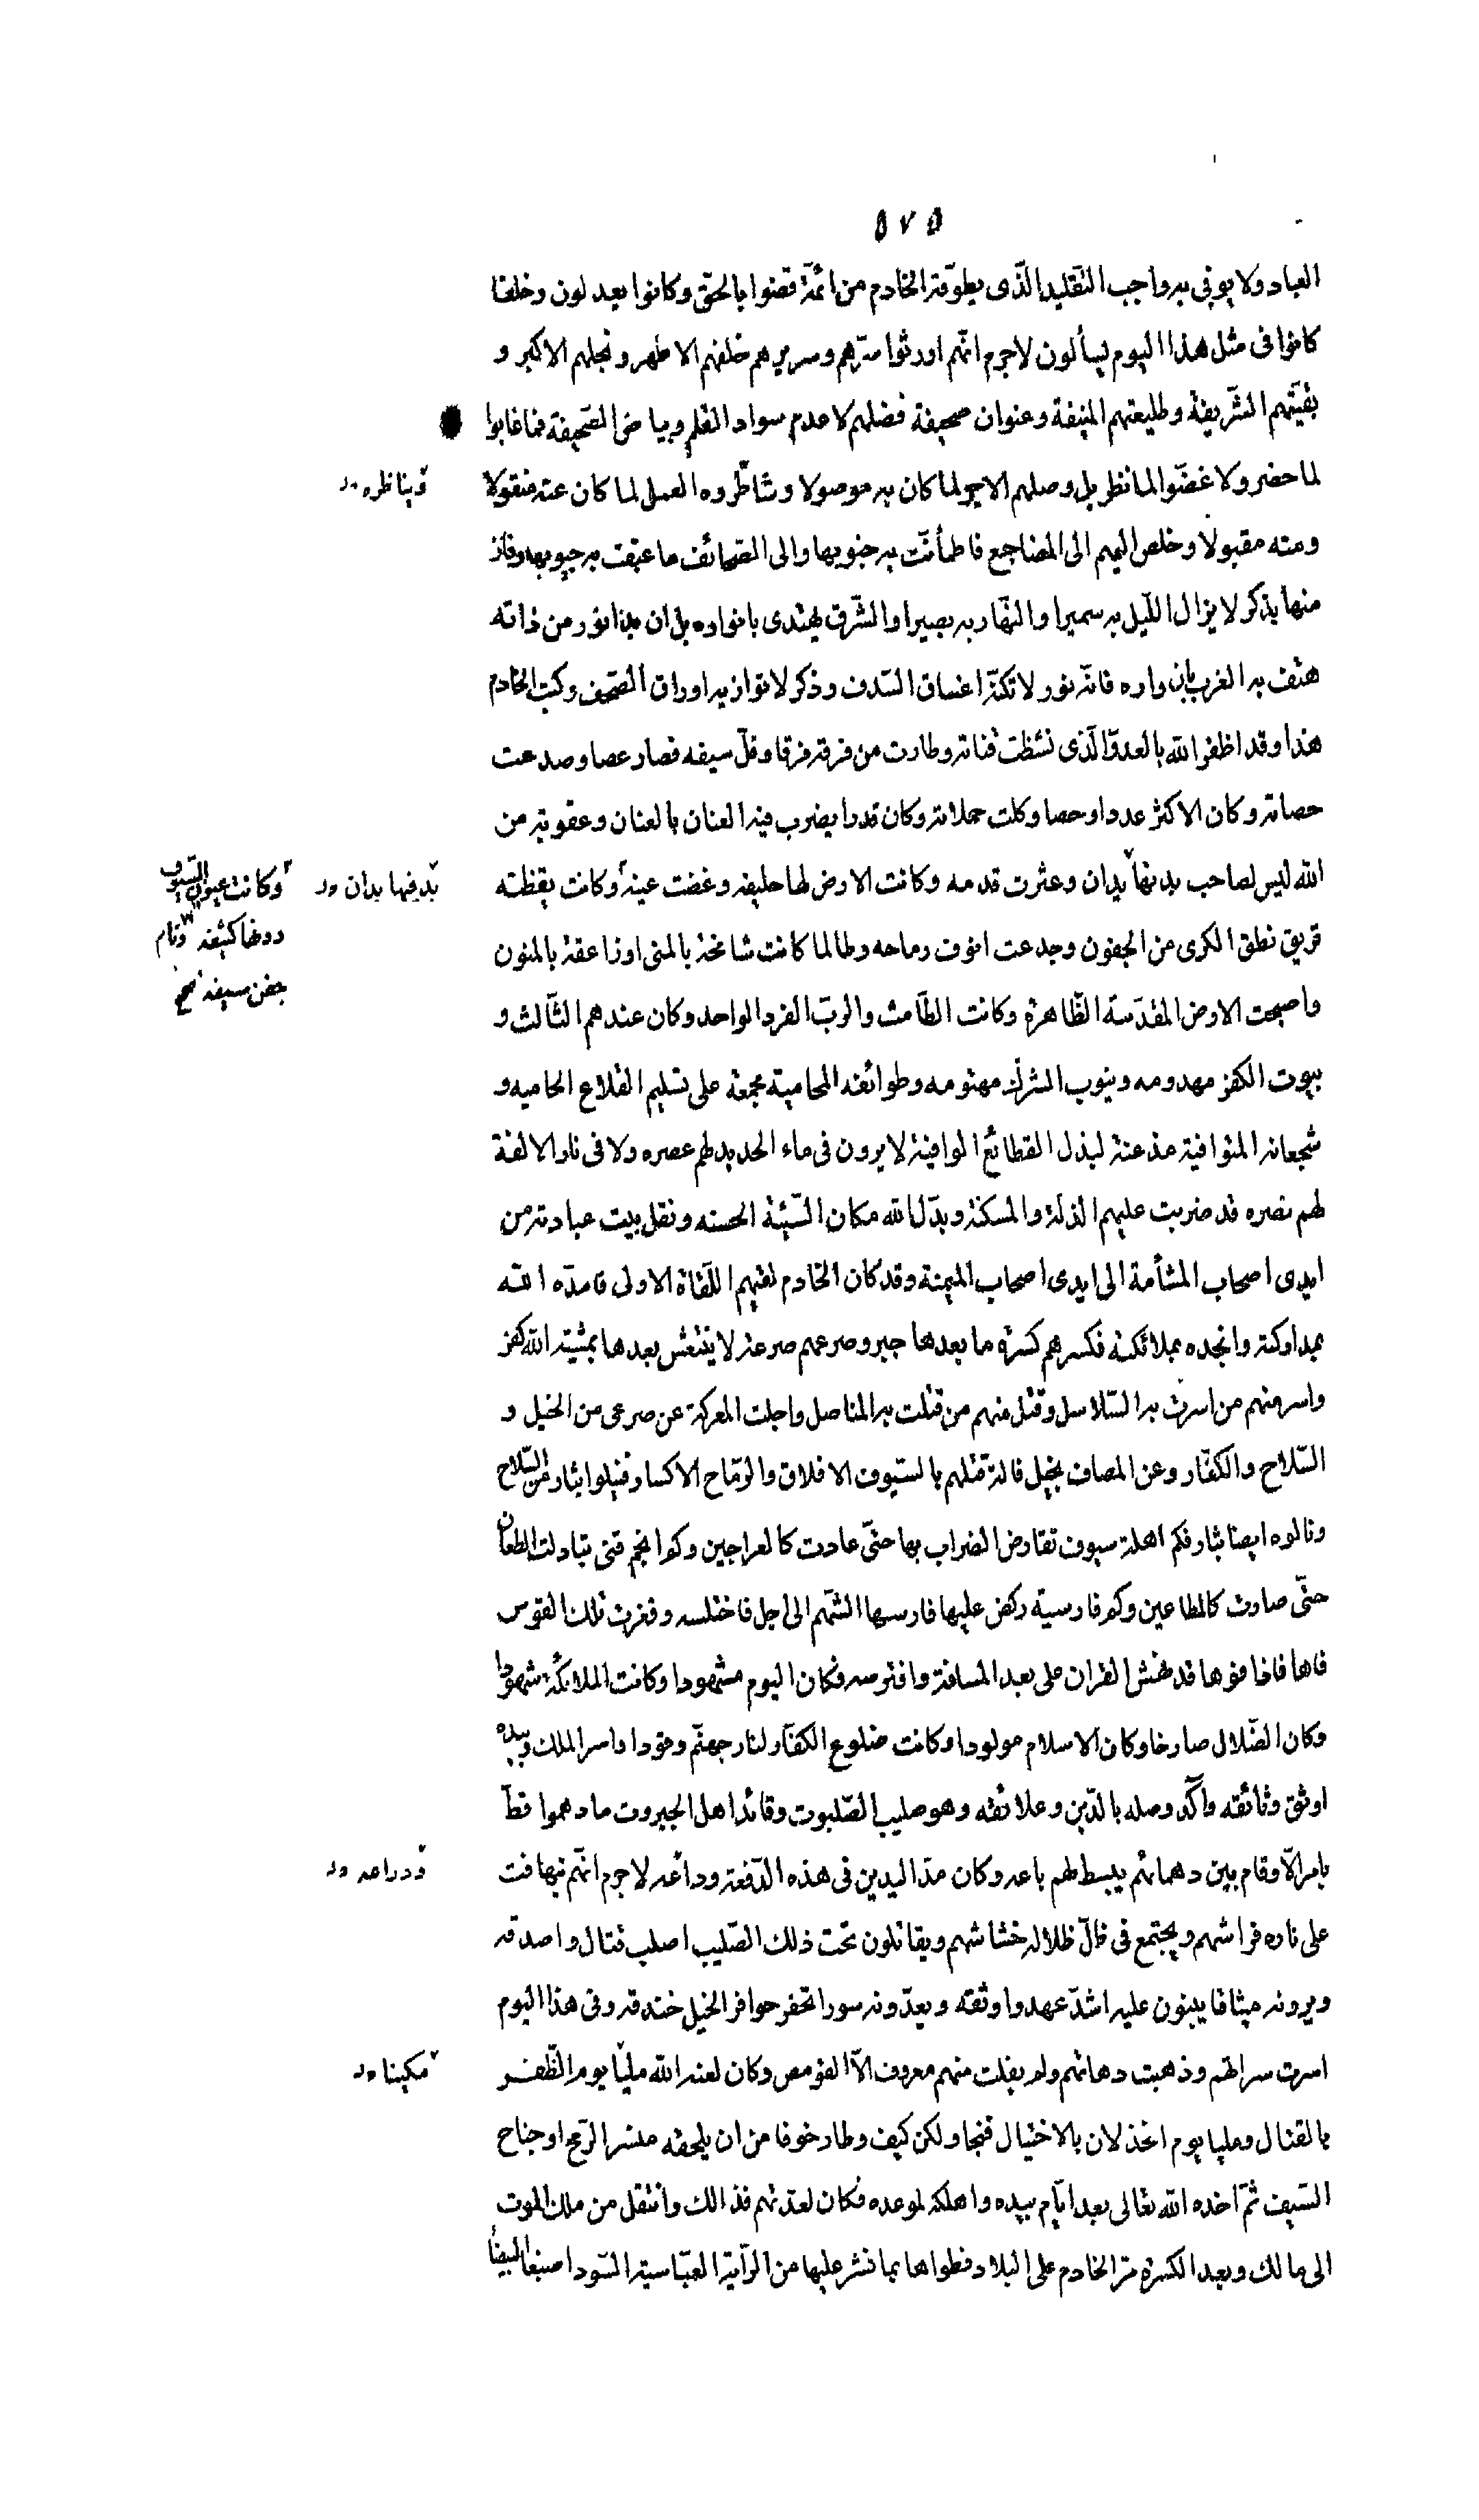 ٥٧٥
العباد ولا يوفى به واجب التقليد الّذى يطوّقه الخادم من ائمّة قضوا بالحقّ وكانوا يعدلون وخلفا
كانوا فى مثل هذا اليوم يسألون لاجرم انّهم اورثوا سرّهم وسريرهم خلفهم الاطهر ونجلهم الاكبر و
بقيّتهم الشّريفة وطليعتهم المنيفة وعنوان صحيفة فضلهم لاعدم سواد القلم وبياض الصّحيفة فما غابوا
لما حضر ولا غضّوا لما نظر بل وصلهم الاجر لما كان به موصولا وشاطروه العمل لما كان عنه منقولا
وينا ظره ور
ومنه مقبولا وخلص اليهم الى المضاجع فاطمأنّت به جنوبها والى الصّحائف ما عبقت به جيوبها وفاز
منها بذكر لا يزال اللّيل به سميرا والنّهار به بصيرا والشّرق يهتدى بانواره بل ان بدا نور من ذاته
هتف به الغرب بان واره فانّه نور لا تكنّه اغساق السّدف وذكر لا توازيه اوراق الصّحف وكتب الخادم
هذا وقد اظفر الله بالعدوّ الّذى تشظت قناته وطارت من فرقه فرقا وفلّ سيفه فصار عصا وصدعت
حصاته وكان الاكثر عددا وحصا وكلت حملاته وكان قدرا يضرب فيه العنان بالعنان وعقوبة من
الله ليس لصاحب يد بها يدان وعثرت قدمه وكانت الارض لها حليفه وغضت عينه وكانت يقظته
يد فيها يدان ور
وكانت عيون السّيوف
دونها كثيفه ونام
جفن سيفه صح
تريق نطق الكرى من الجفون وجدعت انوف رماحه وطالما كانت شامخة بالمنى او زاعقة بالمنون
واصبحت الارض المقدّسة الظّاهرة وكانت الطّامث والربّ الفرد الواحد وكان عندهم الثّالث و
بيوت الكفر مهدومه ونيوب الشرك مهتومه وطوائفه المحامية مجمعة على تسليم القلاع الحاميه و
شجعانه المتوافية مذعنة لبذل القطائع الوافية لا يرون فى ماء الحديد لهم عصره ولا فى نار الالفة
لهم نصره قد ضربت عليهم الذلة والمسكنة وبدّل الله مكان السّيّئة الحسنه ونقل بيت عبادته من
ايدى اصحاب المشأمة الى ايدى اصحاب الميمنة وقد كان الخادم لقيهم اللّقاة الاولى فامدّه الله
بمداركته وانجده بملائكته فكسرهم كسرة ما بعدها جبر وصرعهم صرعة لا ينتعش بعدها بمشيّة الله كفر
واسر منهم من اسرت به السّلاسل وقتل منهم من قتلت به المناصل واجلت المعركة عن صرعى من الخيل و
السّلاح والكفّار وعن المصاف بخيل فانّه قتلهم بالسّيوف الافلاق والرّماح الاكسار فنيلوا بثار من السّلاح
ونالوه ايضا بثار فكم اهلة سيوف تقارض الضراب بها حتّى عادت كالعراجين وكم انجم قنى تبادلت الطعان
حتّى صارت كالمطاعين وكم فارسية ركض عليها فارسها الشّهم الى اجل فاختلسه وفغرت تلك القوس
فاها فاذا فوها قد نهش القران على بعد المسافة وافترسه فكان اليوم مشهودا وكانت الملائكة شهودا
وكان الضّلال صارخا وكان الاسلام مولودا وكانت ضلوع الكفّار لنار جهنّم وقودا واسر الملك وبيده
اوثق وثائقه وآكد وصله بالدّين وعلائقه وهو صليب الصّلبوت وقائد اهل الجبروت ما دهموا قطّ
بامر الّا وقام بين دهمائهم يبسط لهم باعه وكان مدّ اليدين فى هذه الدّفعة وداعه لاجرم انّهم تهافت
وذراعه ور
على ناره فراشهم ويجتمع فى ظلّ ظلاله خشاشهم ويقاتلون تحت ذلك الصّليب اصلب قتال واصدقه
ويرونه ميثاقا يبنون عليه اشدّ عهد واوثقه ويعدّونه سورا تحفر حوافر الخيل خندقه وفى هذا اليوم
اسرت سراتهم وذهبت دهاتهم ولم يفلت منهم معروف الّا القومص وكان لعنه الله مليّا يوم الظّفر
مكينا ور
بالقتال ومليا يوم الخذلان بالاختيال فنجا ولكن كيف وطار خوفا من ان يلحقه منسر الرّمح او جناح
السّيف ثمّ اخذه الله تعالى بعد ايّام بيده واهلكه لموعده فكان لعدّتهم فذالك وانتقل من ملك الموت
الى مالك وبعد الكسرة مرّ الخادم على البلاد فطواها بما نشر عليها من الرّاية العبّاسية السّودا صبغا البيضا